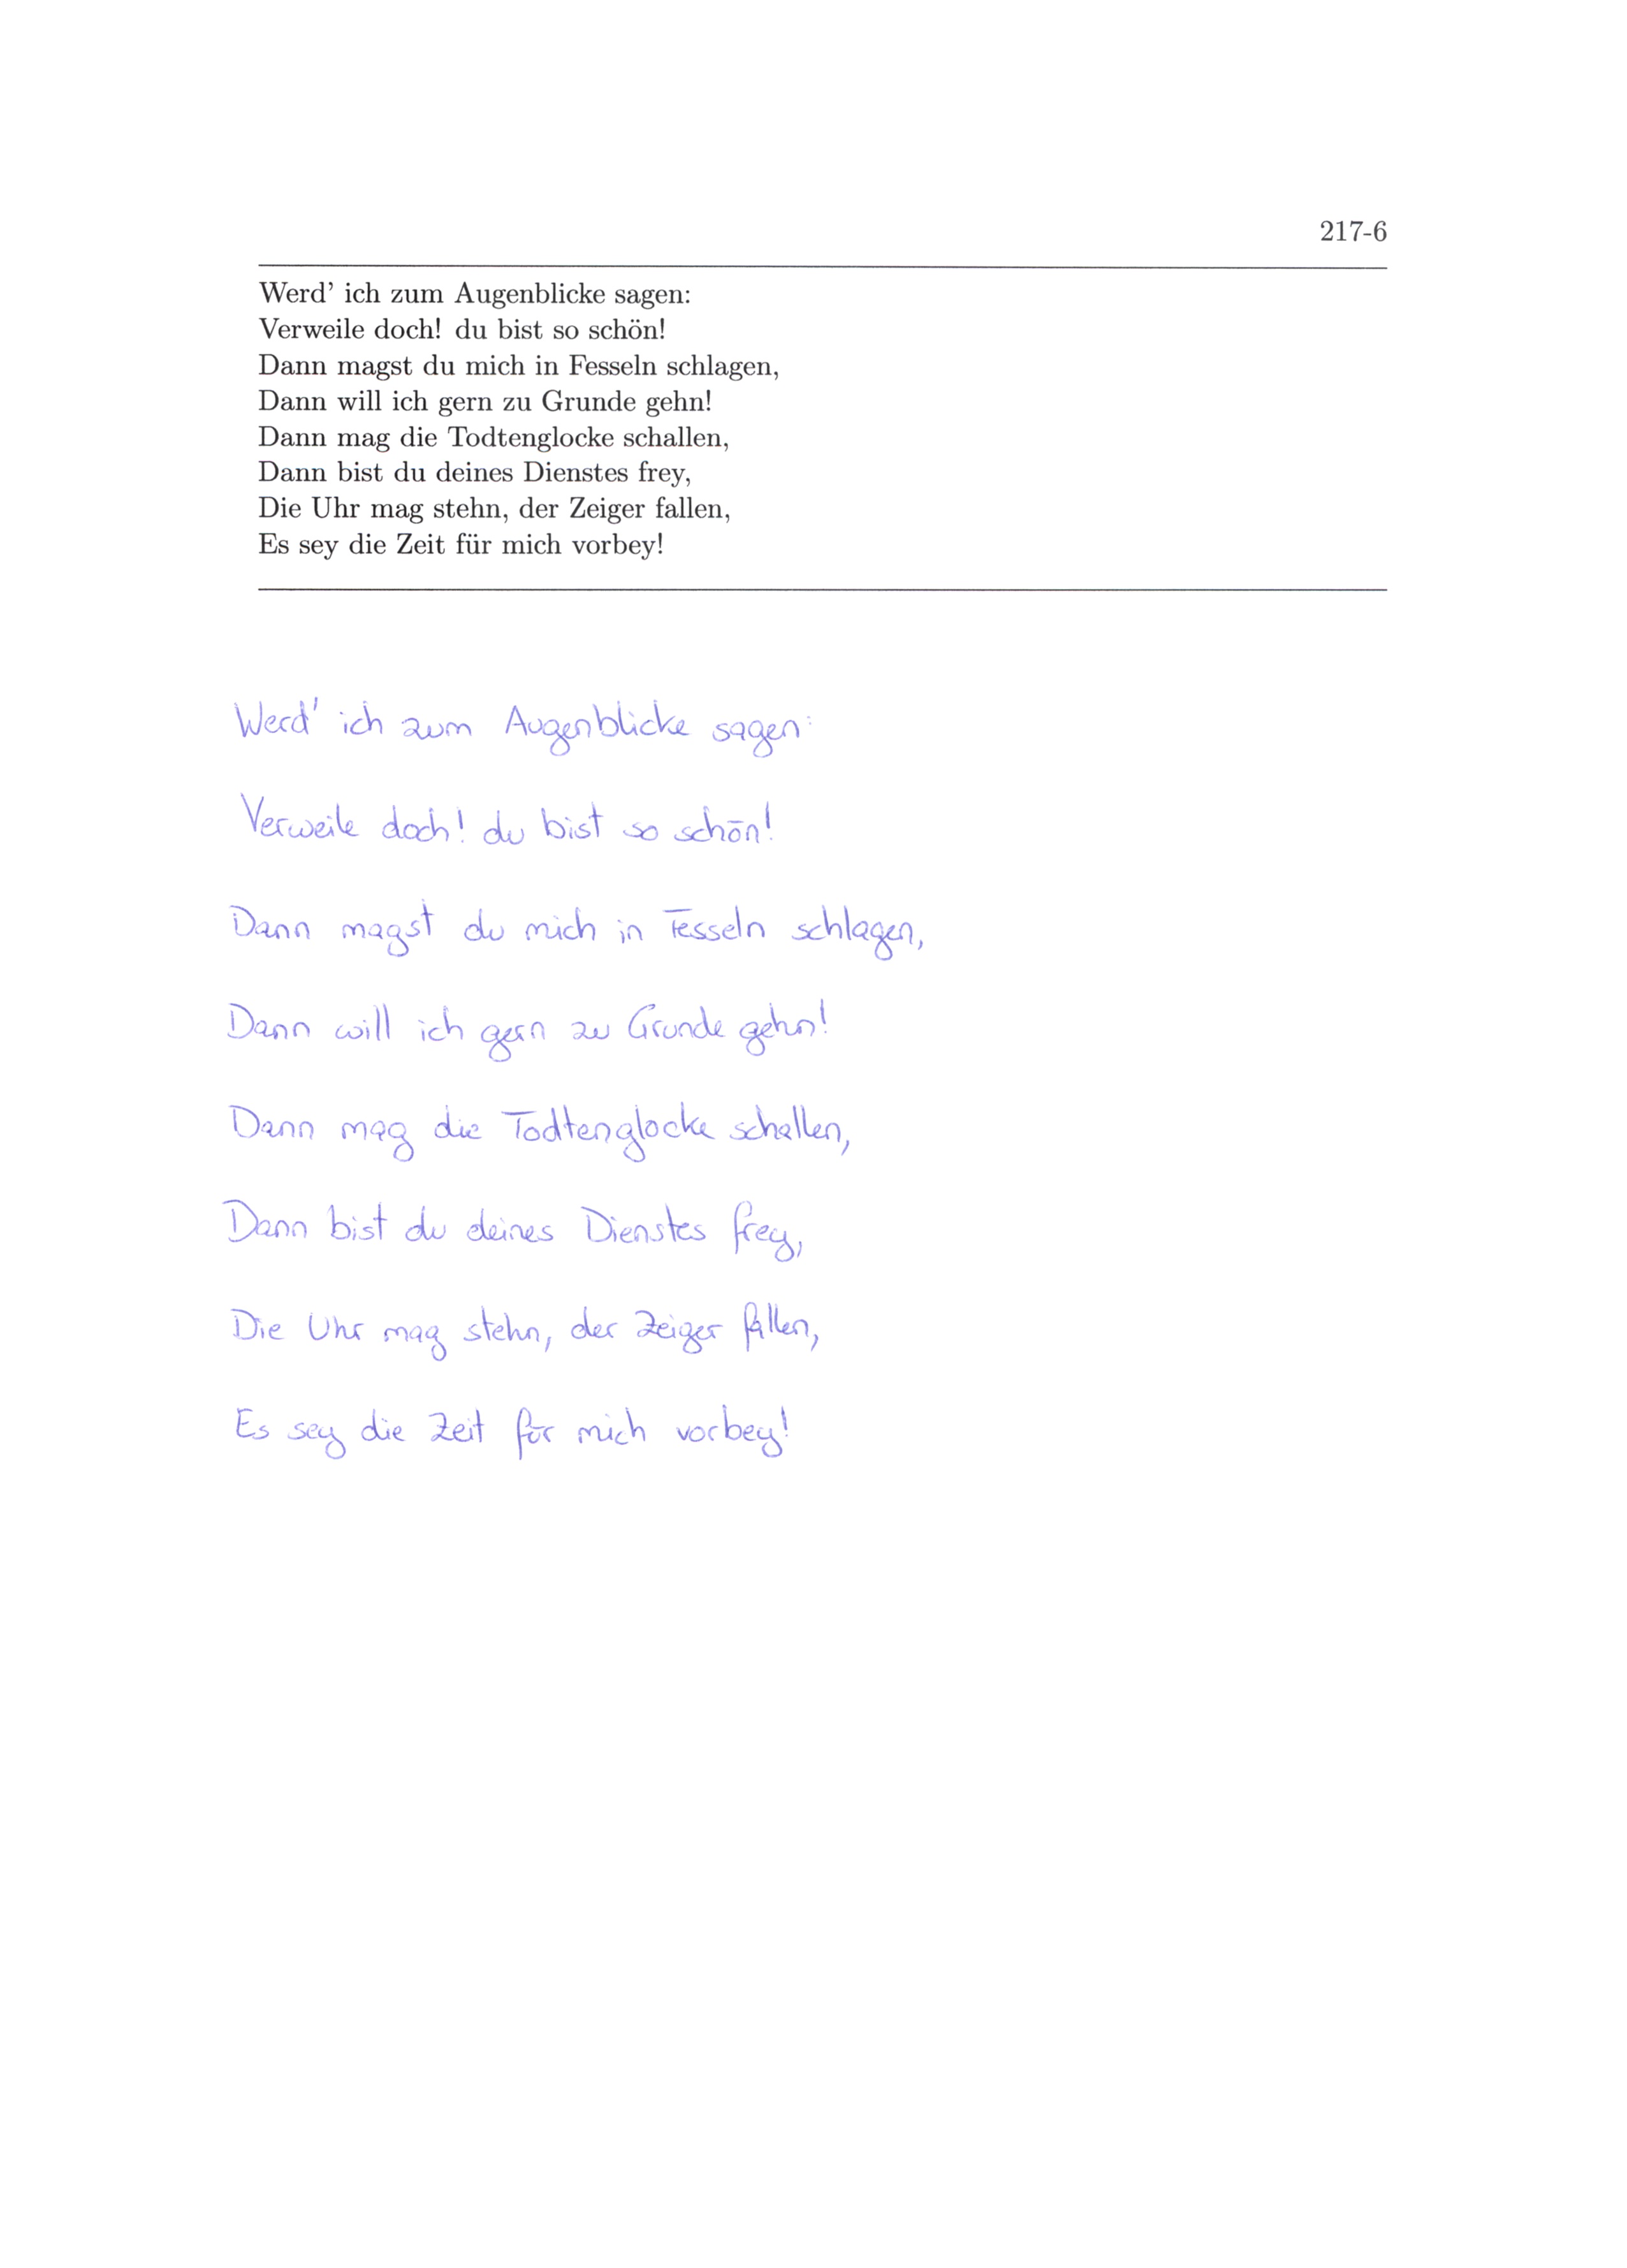 217-6
Werd' ich zum Augenblicke sagen:
Verweile doch! du bist so schön!
Dann magst du mich in Fesseln schlagen,
Dann will ich gern zu Grunde gehn!
Dann mag die Todtenglocke schallen,
Dann bist du deines Dienstes frey,
Die Uhr mag stehn, der Zeiger fallen,
Es sey die Zeit für mich vorbey!
Werd' ich zum Augenblicke sagen:
Verweile doch! du bist so schön!
Dann magst du mich in Fesseln schlagen,
Dann will ich gern zu Grunde gehn!
Dann mag die Todtenglocke schallen,
Dann bist du deines Dienstes frey,
Die Uhr mag stehn, der Zeiger fallen,
Es sey die Zeit für mich vorbey!